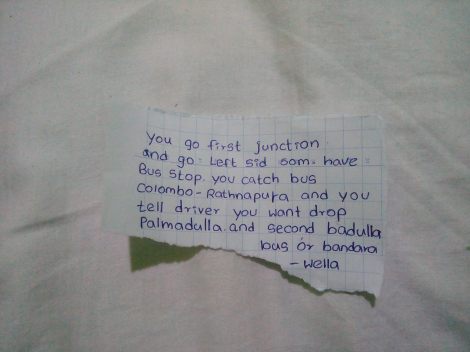 You go first junction
and go. Left sid som. have.
Bus stop. you catch bus
Colombo-Rathnapura and you
tell driver you want drop
Palmadulla. and second badulla
bus or bandara
- wella